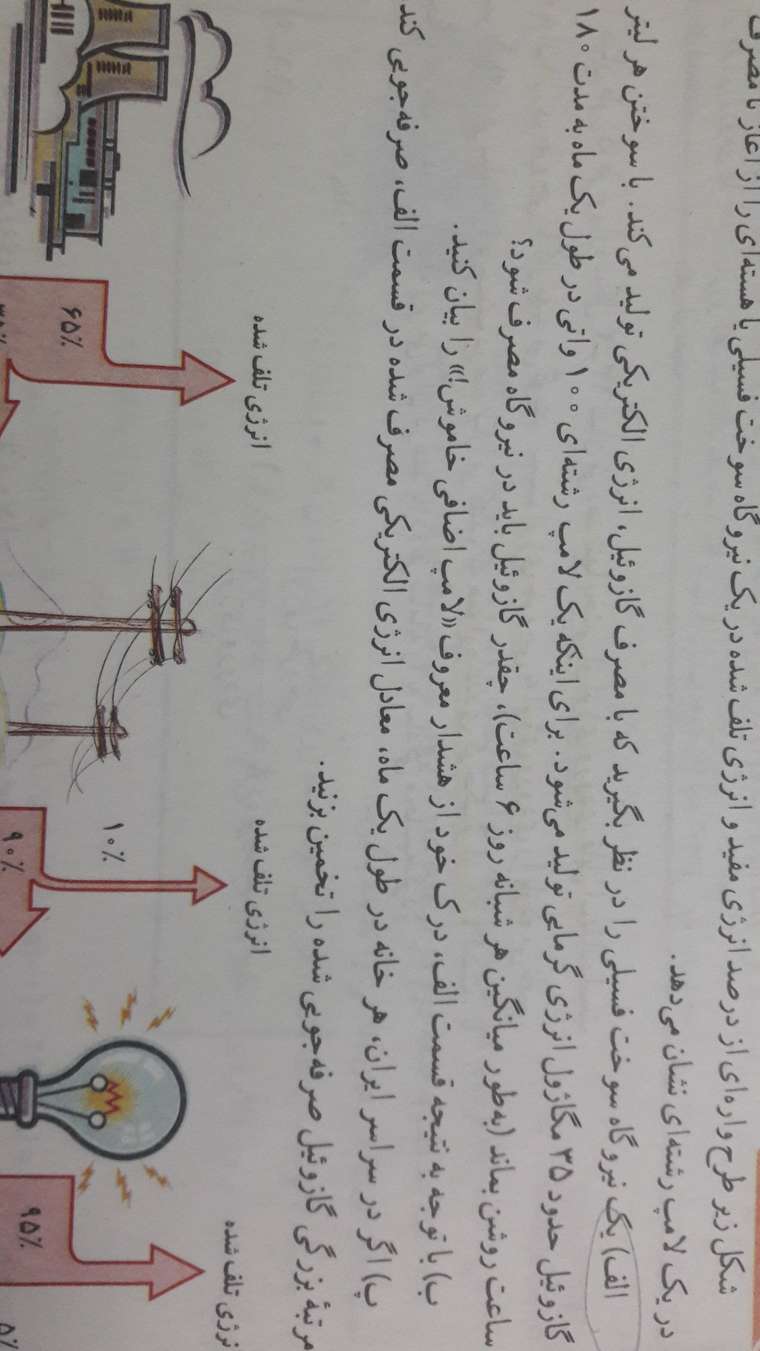 شکل زیر طرح واره‌ای از درصد انرژی مفید و انرژی تلف شده در یک نیروگاه سوخت فسیلی یا هسته‌ای را از آغاز تا مصرف
در یک لامپ رشته‌ای نشان می‌دهد.
الف) یک نیروگاه سوخت فسیلی را در نظر بگیرید که با مصرف گازوئیل، انرژی الکتریکی تولید می‌کند. با سوختن هر لیتر
گازوئیل حدود ۳۵ مگاژول انرژی گرمایی تولید می‌شود. برای اینکه یک لامپ رشته‌ای ۱۰۰ واتی در طول یک ماه به مدت ۱۸۰
ساعت روشن بماند (به‌طور میانگین هر شبانه روز ۶ ساعت)، چقدر گازوئیل باید در نیروگاه مصرف شود؟
ب) با توجه به نتیجه قسمت الف، درک خود از هشدار معروف «لامپ اضافی خاموش!» را بیان کنید.
پ) اگر در سراسر ایران، هر خانه در طول یک ماه، معادل انرژی الکتریکی مصرف شده در قسمت الف، صرفه‌جویی کند
مرتبهٔ بزرگی گازوئیل صرفه‌جویی شده را تخمین بزنید.
انرژی تلف شده
انرژی تلف شده
نرژی تلف شده
۶۵٪
۱۰٪
۹۵٪
۹۰٪
۵٪